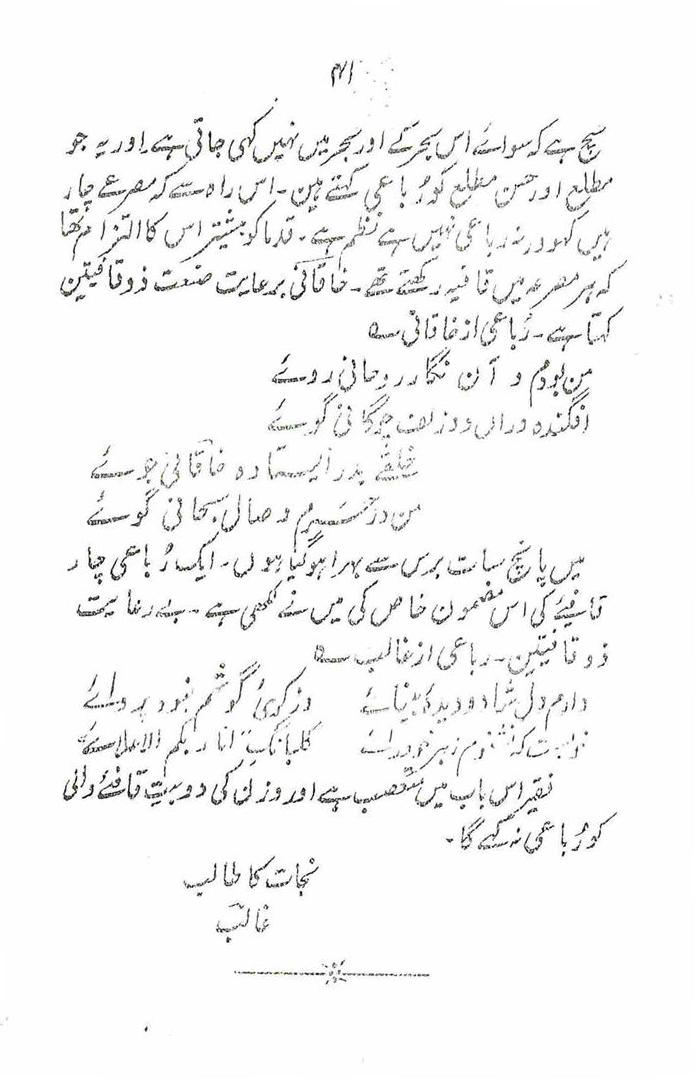 ۴۱
سچ ہے کہ سوائے اس بحر کے اور بحر میں نہیں کہی جاتی ہے اور یہ جو
مطلع اور حسن مطلع کو رُباعی کہتے ہین۔ اس راہ سے کہ مصرعے چار
ہیں کہو ورنہ رباعی نہیں ہے نظم ہے۔ قدما کو بیشتر اس کا التزام تھا
کہ ہر مصرعہ میں قافیہ رکھتے تھے۔ خاقانی برعایت صنعت ذوقافیتین
کہتا ہے۔ رُباعی از خاقانی ؎
من بودم و آن نگار روحانی روئے
افگندہ دراں دو زلف چوگانی گوئے
خلقے بدر ایستادہ خاقانی جوئے
من در حرم وصال سبحانی گوئے
میں پانچ سات برس سے بہرا ہو گیا ہوں۔ ایک رُباعی چار
قافیئے کی اس مضمون خاص کی میں نے لکھی ہے۔ بے رعایت
ذوقافیتین۔ رباعی از غالب ؎
دارم دل شاد و دیدہ بینائے وز کریٔ گوشم نبود پروائے
خوبست کہ نشنوم زہر خود رائے گلبانگ انا ربکم الاعلائے
فقیر اس باب میں متعصب ہے اور وزن کی دو بیت قافئے والی
کو رُباعی نہ کہے گا۔
نجات کا طالب
غالبؔ